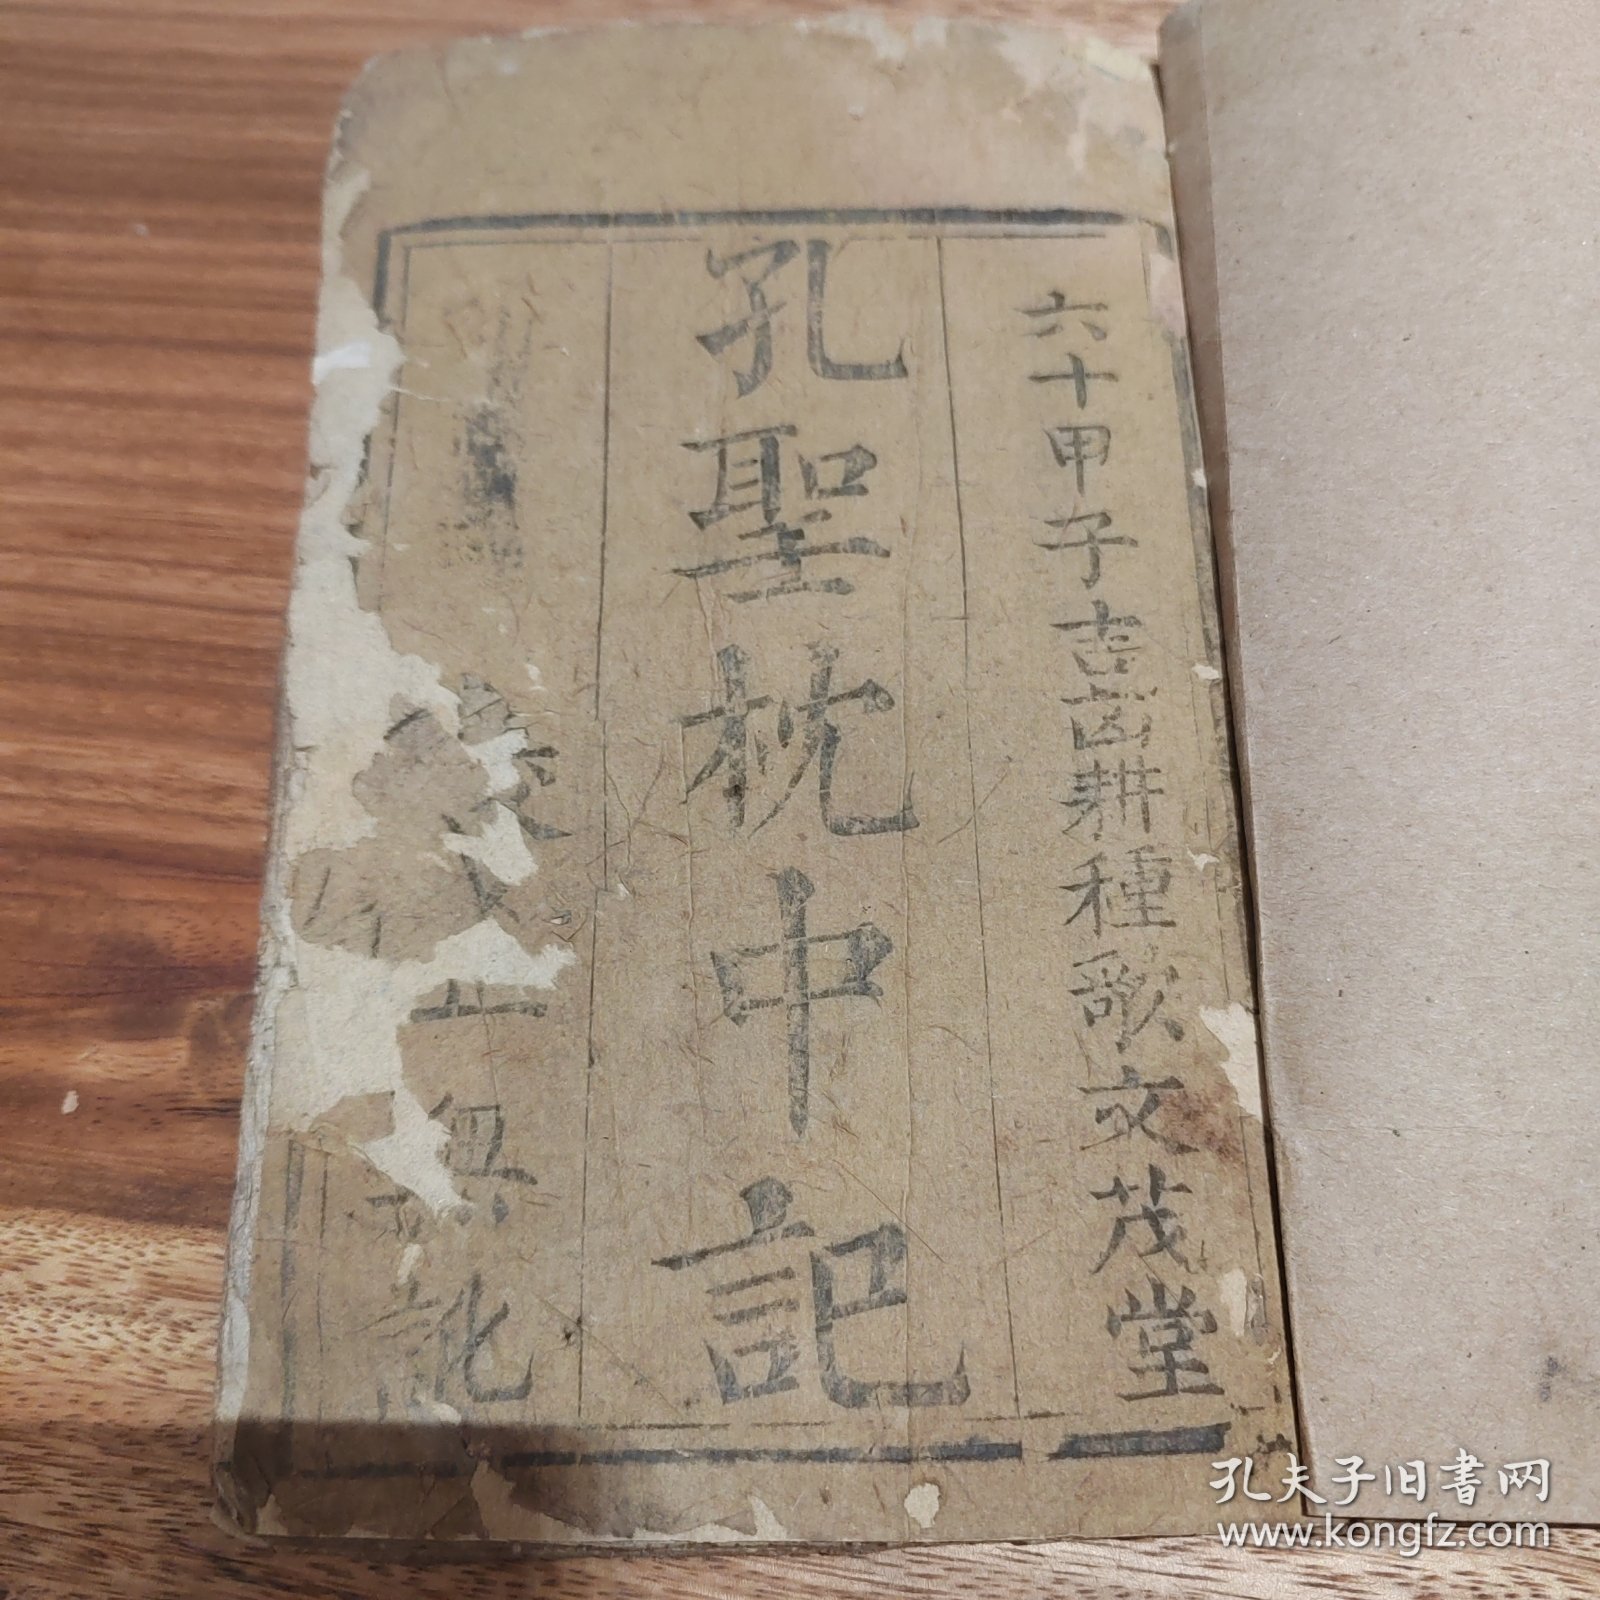 六十甲子吉凶耕種歌文茂堂
孔聖枕中記
校 正無訛
孔夫子旧书网
www.kongfz.com